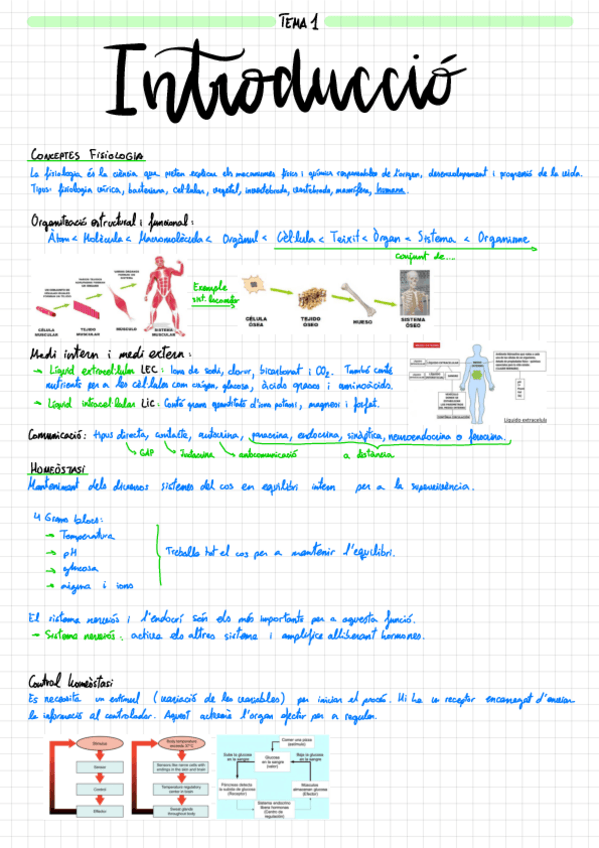 TEMA 1
Introducció
CONCEPTES FISIOLOGIA
La fisiologia és la ciència que preten explicar els mecanismes físics i químics responsables de l'origen, desenvolupament i progressió de la vida.
Tipus: fisiologia vírica, bacteriana, cel·lular, vegetal, invertebrada, vertebrada, mamífera, humana.
Organització estructural i funcional:
Àtom < Molècula < Macromolècula < Orgànul < Cèl·lula < Teixit < Òrgan < Sistema < Organisme
conjunt de....
Exemple
sist. locomotor
CÉLULA MUSCULAR
TEJIDO MUSCULAR
MÚSCULO
SISTEMA MUSCULAR
CÉLULA ÓSEA
TEJIDO ÓSEO
HUESO
SISTEMA ÓSEO
Medi intern i medi extern:
→ Líquid extracel·lular LEC: Ions de sodi, clorur, bicarbonat i CO₂. També conté
nutrients per a les cèl·lules com oxigen, glucosa, àcids grassos i aminoàcids.
→ Líquid intracel·lular LIC: Conté grans quantitats d'ions potassi, magnesi i fosfat.
Líquido extracelular
Comunicació: tipus directa, contacte, autocrina, paracrina, endocrina, sinàptica, neuroendocrina o ferocrina.
GAP
Juxtacrina
autocomunicació
a distància
HOMEÒSTASI
Manteniment dels diversos sistemes del cos en equilibri intern per a la supervivència.
4 Grans blocs:
→ Temperatura
→ pH
→ glucosa
→ aigua i ions
Treballa tot el cos per a mantenir l'equilibri.
El sistema nerviós i l'endocrí són els més importants per a aquesta funció.
→ Sistema nerviós: activa els altres sistema i amplifica alliberant hormones.
Control homeòstasi
Es necesita un estímul (variació de les variables) per iniciar el procés. Hi ha un receptor encarregat d'enviar
la informació al controlador. Aquest activarà l'organ efector per a regular.
Stimulus
Sensor
Control
Effector
Body temperature exceeds 37°C
Sensors like nerve cells with endings in the skin and brain
Temperature regulatory center in brain
Sweat glands throughout body
Comer una pizza (estímulo)
Sube la glucosa en la sangre
Glucosa en la sangre (valor)
Baja la glucosa en la sangre
Páncreas detecta la subida de glucosa (Receptor)
Músculos almacenan glucosa (Efector)
Sistema endocrino libera hormonas (Centro de regulación)